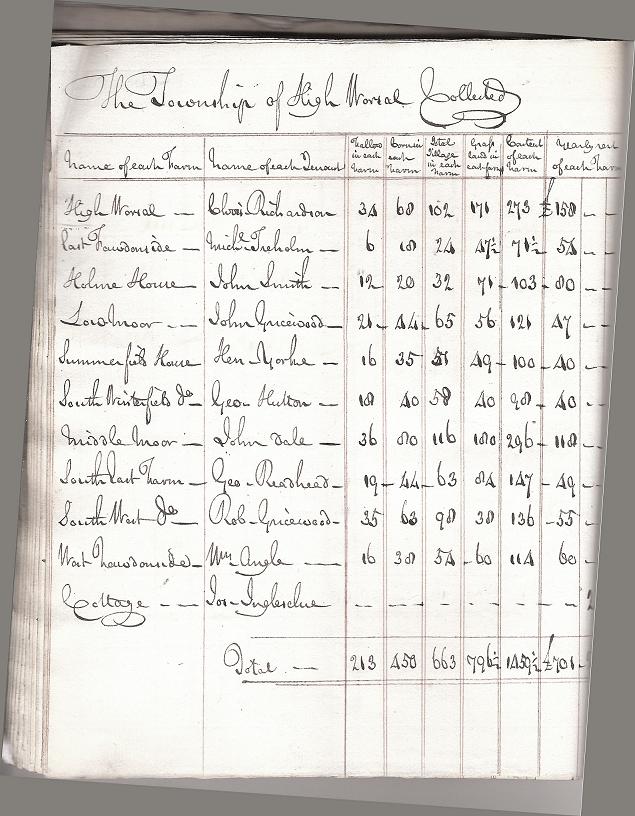 The Township of High Worsal Collected
Name of each Farm Name of each Tenant Fallow in each Farm Corn in each Farm Total Tillage in each Farm Grass land in each farm Content of each Farm Yearly rent of each Farm
High Worsal — Chris. Richardson 34 68 102 171 273 £158 - -
East Fawdonside — Mich. Treholm — 6 18 24 47½ 71½ 54 - -
Holme House John Smith — 12 20 32 71 - 103 - 80 - -
Lowmoor - - John Gricewood - 21 - 44 - 65 56 121 47 - -
Summerfield House Hen. Yorke — 16 35 51 49 - 100 - 40 - -
South Winterfield Do - Geo. Hutton — 18 40 58 40 98 - 40 - -
Middle Moor - John Dale — 36 80 116 180 296 - 118 -
South East Farm - Geo. Readhead - 19 - 44 - 63 84 147 - 49 -
South West Do Rob. Gricewood - 35 63 98 38 136 - 55 -
West Fawdonside - Wm. Angle — 16 38 54 - 60 114 60 -
Cottage - - Jos. - - - - - - -
Total — 213 450 663 796½ 1459½ £701 -